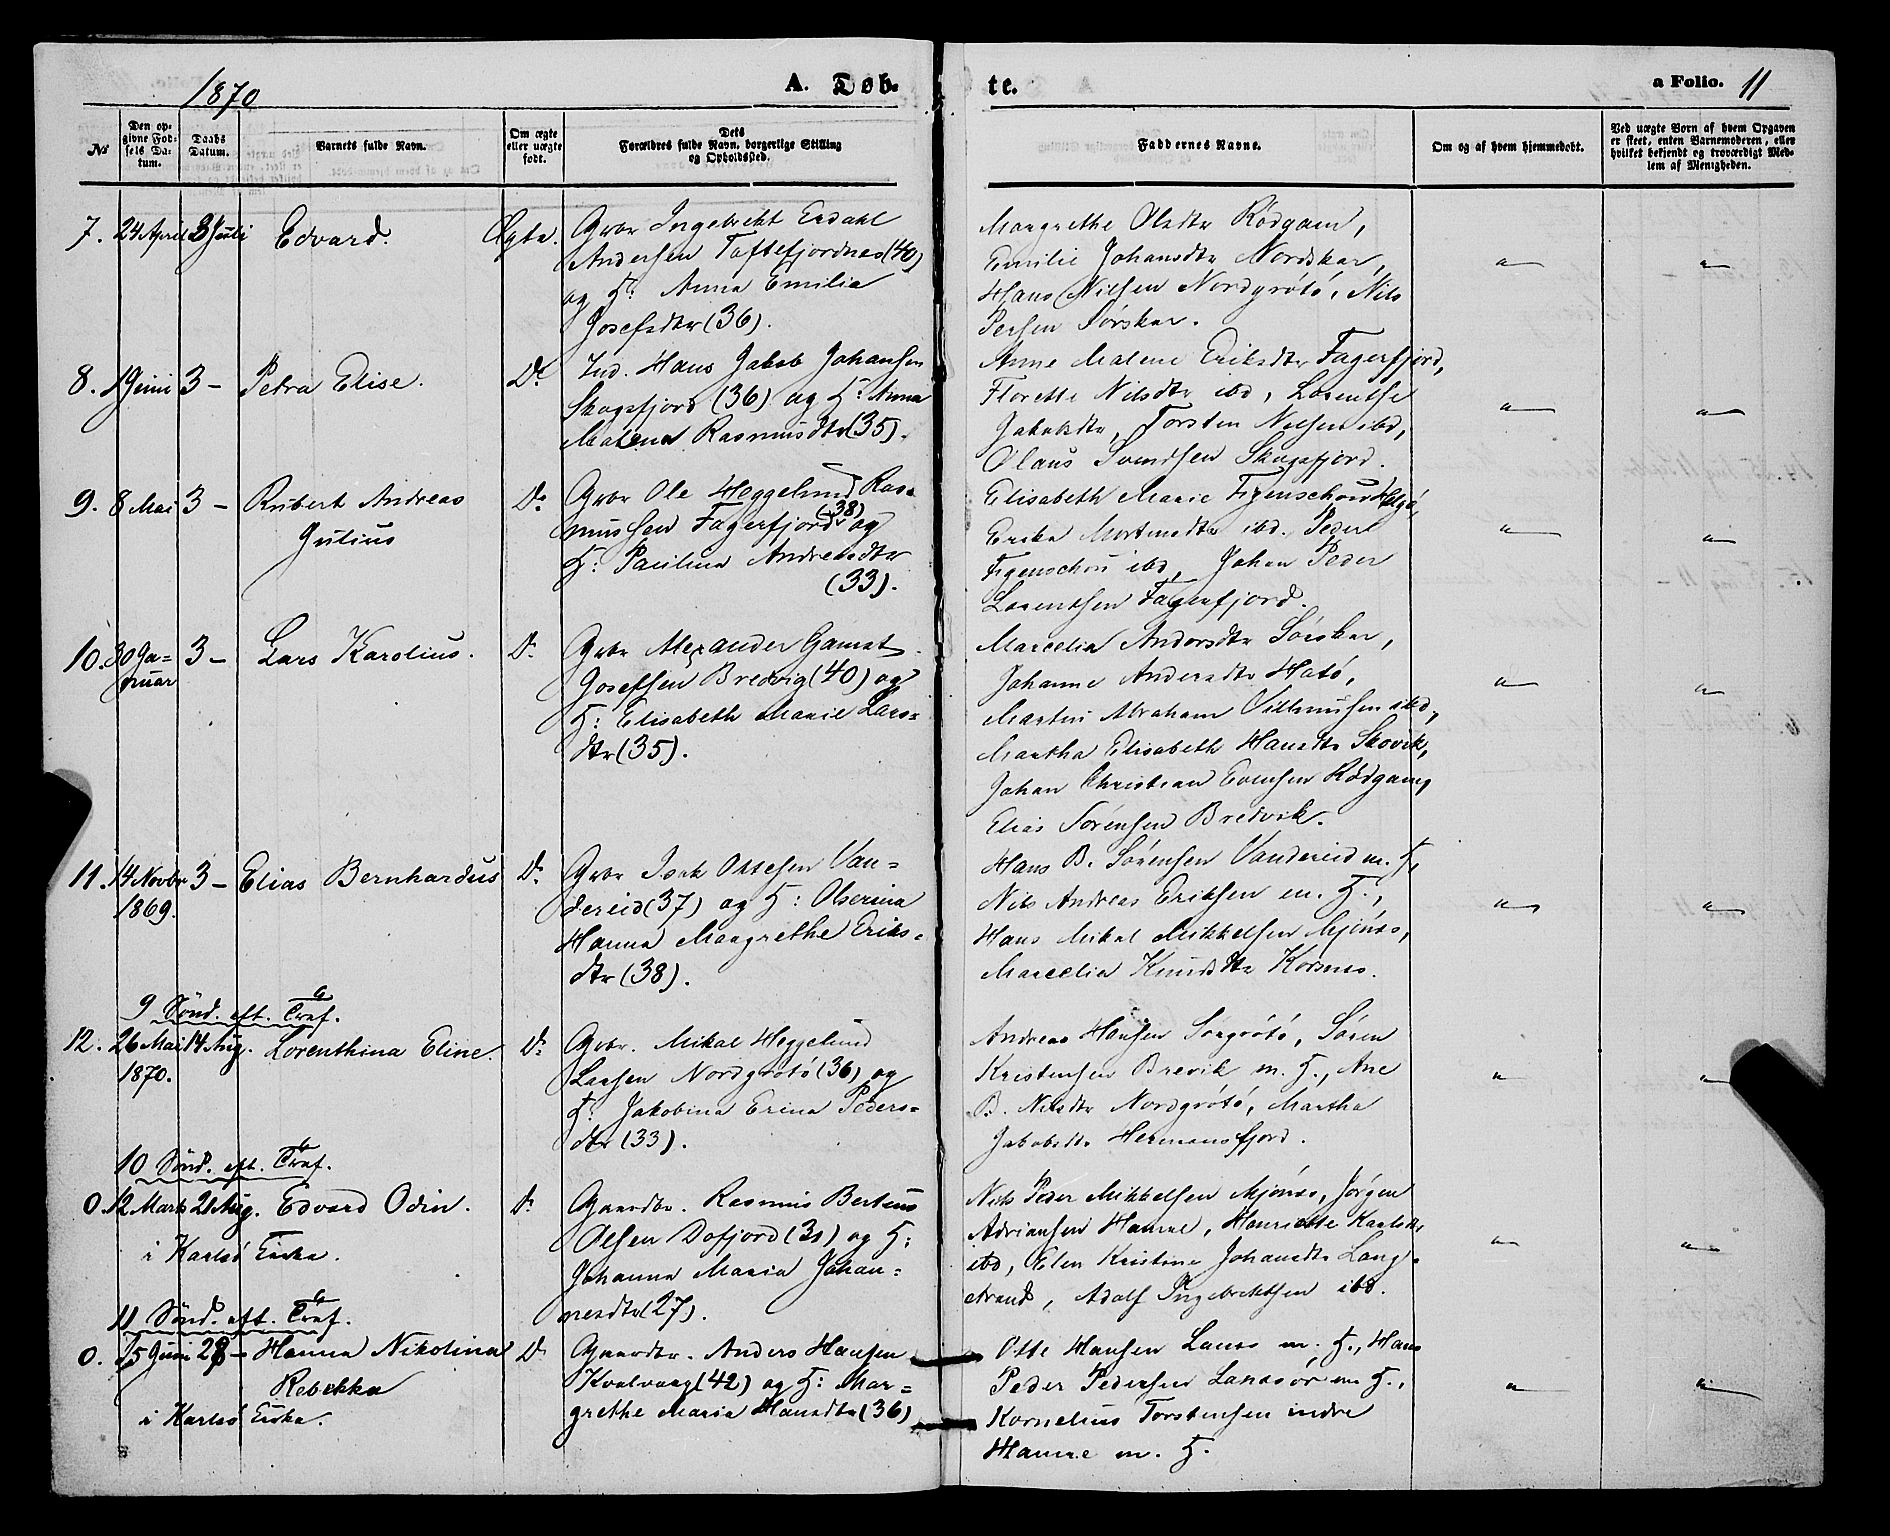 1870
A. Døb-
te.
a Folio. 11
No
Den op-
givne Fød-
sels Da-
tum.
Daabs
Datum.
Barnets fulde Navn.
Om ægte
eller uægte
født.
Dets
Forældres fulde Navn, borgerlige Stilling
og Opholdssted.
Faddernes Navne.
Om og af hvem hjemmedøbt.
Ved uægte Børn af hvem Opgaven
er skeet, enten Barnemoderen, eller
hvilket bekjendt og troværdigt Med-
lem af Menigheden.
7. 24 April 3 Juli Edvard. Ægte. Gbr Ingebrikt Erdahl
Andersen Toftefjordnes (40)
og H: Anna Emilia
Josefsdtr (36).
Margrethe Olsdtr Rødgam,
Emilie Johansdtr Nordskar,
Hans Nilsen Nordgrøtø, Nils
Persen Sørskar.
8. 19 Juni 3 – Petra Elise. Do Ind. Hans Jakob Johansen
Skogsfjord (36) og H: Anna
Malena Rasmusdtr (35).
Anne Malene Eriksdtr Fagerfjord,
Florette Nilsdtr ibd, Lorentse
Jakobsdtr, Torsten Nilsen ibd,
Olaus Svendsen Skogsfjord.
9. 8 Mai 3 – Rubert Andreas
Julius
Do Gbr Ole Heggelund Ras-
mussen Fagerfjord (38) og
H: Paulina Andreasdtr
(33).
Elisabeth Marie Figenschou Helgø,
Erika Mortensdtr ibd. Peder
Figenschou ibd, Johan Peder
Lorentsen Fagerfjord.
10. 30 Ja-
nuar
3 – Lars Karolius. Do Gbr Alexander Gamst
Josefsen Bredvig (40) og
H: Elisabeth Marie Lars-
dtr (35).
Marcelia Andersdtr Sørskar,
Johanne Andersdtr Hatø,
Martin Abraham Villumsen ibd,
Martha Elisabeth Hansdtr Skovik,
Johan Christian Evensen Rødgam,
Elias Sørensen Bredvik.
11. 14 Novbr
1869.
3 – Elias Bernhardus Do Gbr Isak Ottesen Van-
dereid (37) og H: Olserina
Hanna Margrethe Eriks-
dtr (38).
Hans B. Sørensen Vandereid m. H,
Nils Andreas Eriksen m. H.,
Hans Mikal Mikkelsen Mjønes,
Marcelia Knudsdtr Korsnes.
9 Sønd. eft. Tref.
12. 26 Mai
1870.
14 Aug. Lorenthina Eline. Do Gbr. Mikal Heggelund
Larsen Nordgrøtø (36) og
H: Jakobina Erina Peders-
dtr (33).
Andreas Hansen Sørgrøtø, Søren
Kristensen Brevik m. H., Ane
B. Nilsdtr Nordgrøtø, Martha
Jakobsdtr Hermansfjord.
10 Sønd. eft. Tref.
0. 12 Marts 21 Aug. Edvard Odin.
i Karlsø Kirke.
Do Gaardbr. Rasmus Berteus
Olsen Dafjord (31) og H:
Johanna Maria Johan-
nesdtr (27).
Nils Peder Mikkelsen Mjønes, Jørgen
Adriansen Hamre, Henriette Karlsdtr
ibd, Elen Kristine Johansdtr Lang-
strand, Adolf Ingebrektsen ibd.
11 Sønd. eft. Tref.
0. 15 Juni 28 – Hanna Nikolina
Rebekka
i Karlsø Kirke.
Do Gaardbr. Anders Hansen
Kvalvaag (42) og H: Mar-
grethe Maria Hansdtr (36)
Otte Hansen Lanes m. H., Hans
Peder Pedersen Lanesør m H.,
Kornelius Torstensen indre
Hamre m. H.